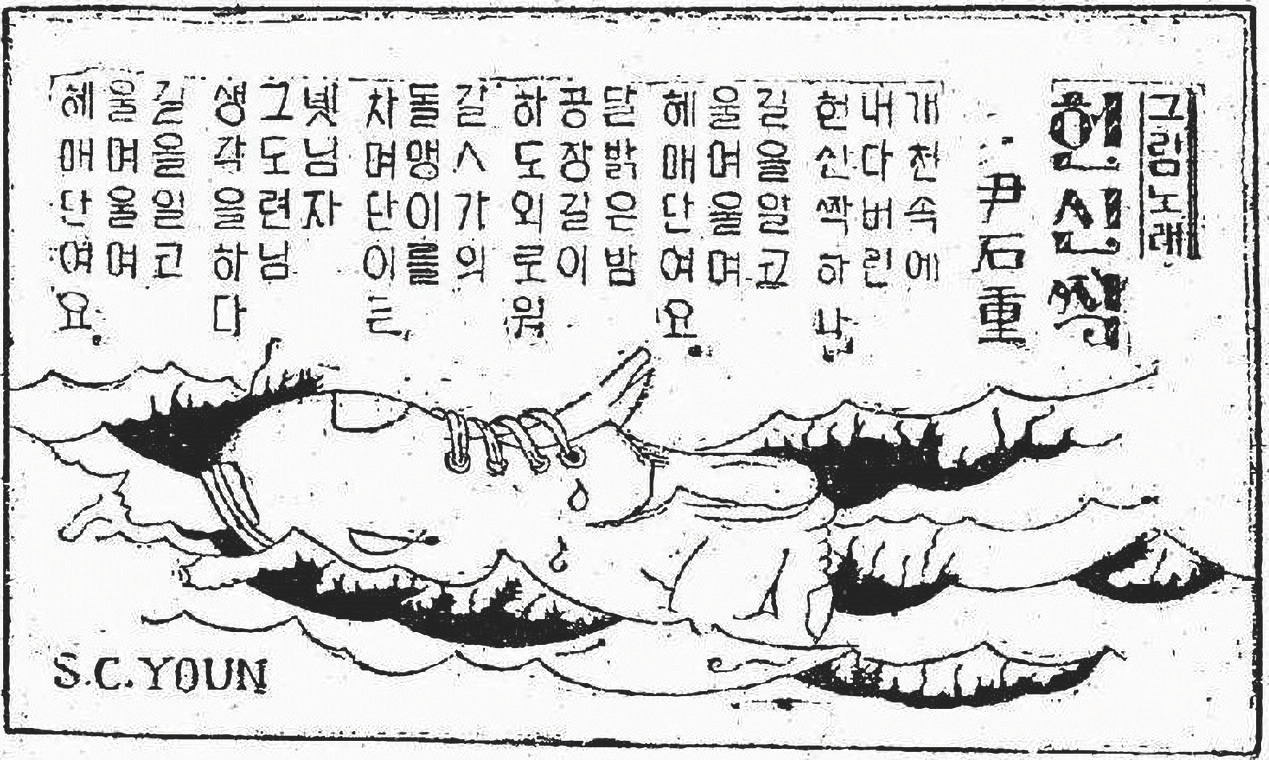 그림노래
헌신짝
尹石重
개천속에
내다버린
헌신짝하나
길을알고
울며울며
헤매단여요.
달밝은밤
공장길이
하도외로워
길ㅅ가의
돌맹이를
차며단이든
녯님자
그도련님
생각을하다
길을일고
울며울며
헤매단여요.
S.C.YOUN